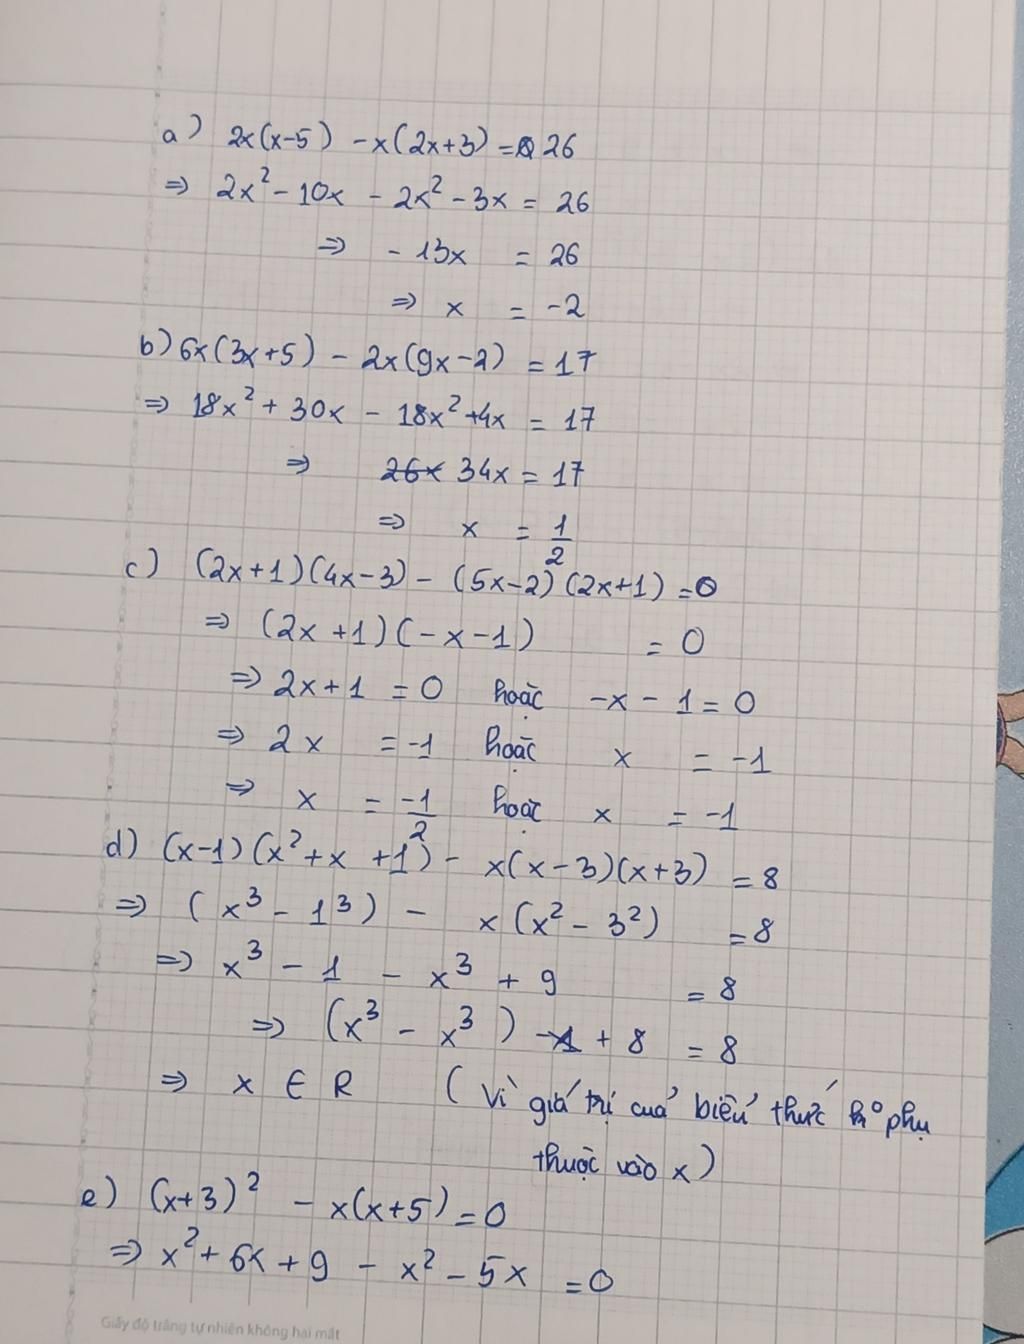 a) 2x(x-5) - x(2x+3) = 26
⇒ 2x² - 10x - 2x² - 3x = 26
⇒ - 13x = 26
⇒ x = -2
b) 6x(3x+5) - 2x(9x-2) = 17
⇒ 18x² + 30x - 18x² + 4x = 17
⇒ 26x 34x = 17
⇒ x = 1/2
c) (2x+1)(4x-3) - (5x-2)(2x+1) = 0
⇒ (2x+1)(-x-1) = 0
⇒ 2x+1 = 0 hoặc -x - 1 = 0
⇒ 2x = -1 hoặc x = -1
⇒ x = -1/2 hoặc x = -1
d) (x-1)(x²+x+1) - x(x-3)(x+3) = 8
⇒ (x³ - 1³) - x(x² - 3²) = 8
⇒ x³ - 1 - x³ + 9 = 8
⇒ (x³ - x³) + 8 = 8
⇒ x ∈ R (Vì giá trị của biểu thức k° phụ
thuộc vào x)
e) (x+3)² - x(x+5) = 0
⇒ x² + 6x + 9 - x² - 5x = 0
Giấy độ trắng tự nhiên không hại mắt